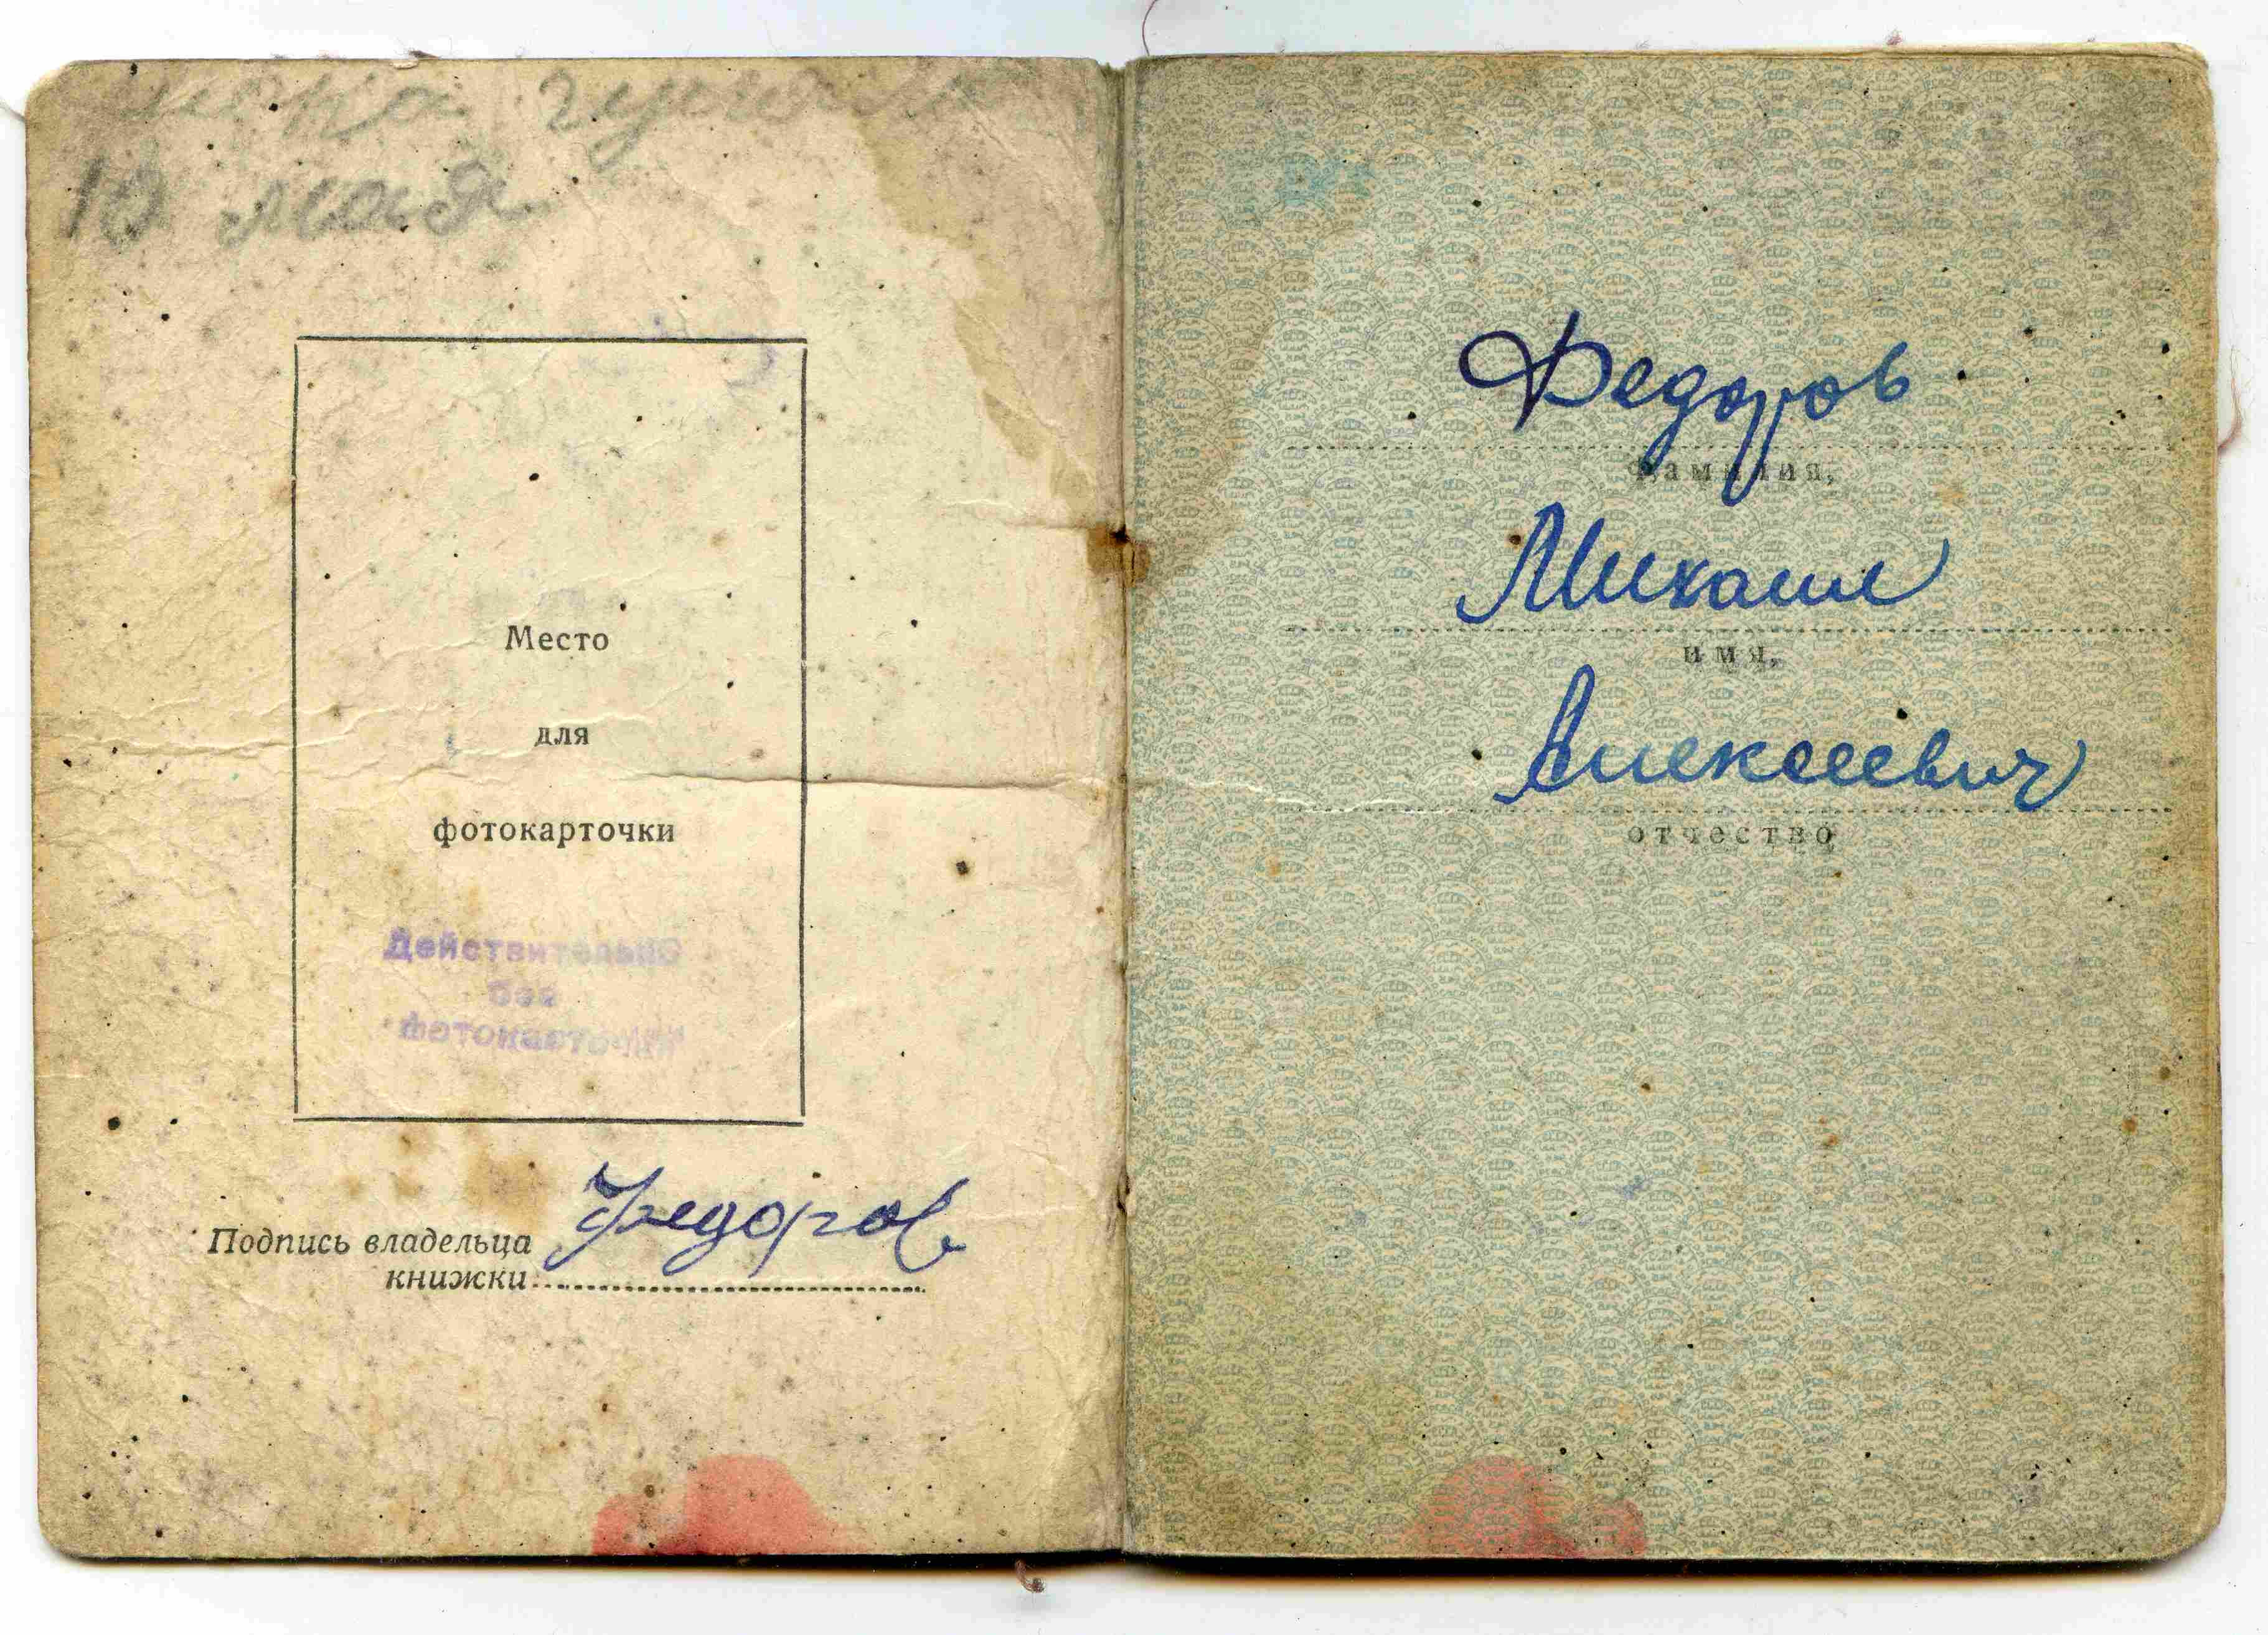 10 мая
Место
для
фотокарточки
Действительно
без
фотокарточки
Федоров
Подпись владельца
книжки
Федоров
фамилия,
Михаил
имя,
Алексеевич
отчество